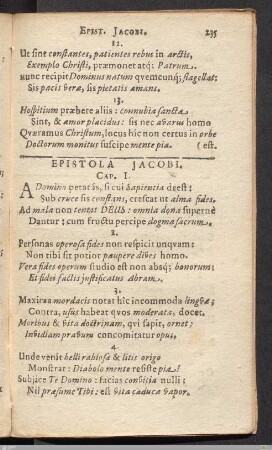 EPIST. JACOBI. 235
12.
Ut sint constantes, patientes rebus in arctis,
Exemplo Christi, præmonet atq; Patrum.
Hunc recipit Dominus natum quemcunq; flagellat:
Sis pacis veræ, sis pietatis amans.
13.
Hospitium præbete aliis: connubia sancta
Sint, & amor placidus: sis nec avarus homo
Quæramus Christum, locus hic non certus in orbe
Doctorum monitus suscipe mente pia. (est.
EPISTOLA JACOBI.
CAP. I.
A Domino petat is, si cui Sapientia deest:
Sub cruce sis constans, crescat ut alma fides.
Ad mala non tentat DEUS: omnia dona supernè
Dantur: cum fructu percipe dogma sacrum.
2.
Personas operosa fides non respicit unquam:
Non tibi sit potior paupere dives homo.
Vera fides operum studio est non absq; bonorum:
Et fidei factis justificatus Abram.
3.
Maxima mordacis notat hîc incommoda linguæ;
Contra, usus habeat quos moderata, docet.
Moribus & vita doctrinam, qui sapit, ornet;
Invidiam pravum concomitatur opus.
4.
Unde venit belli rabiosæ & litis origo
Monstrat: Diabolo mente resiste pia!
Subjice Te Domino: facias convitia nulli;
Nil præsume Tibi: est vita caduca vapor.